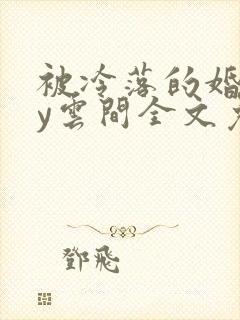 被冷落的婚
y雲間全文
鄧飛